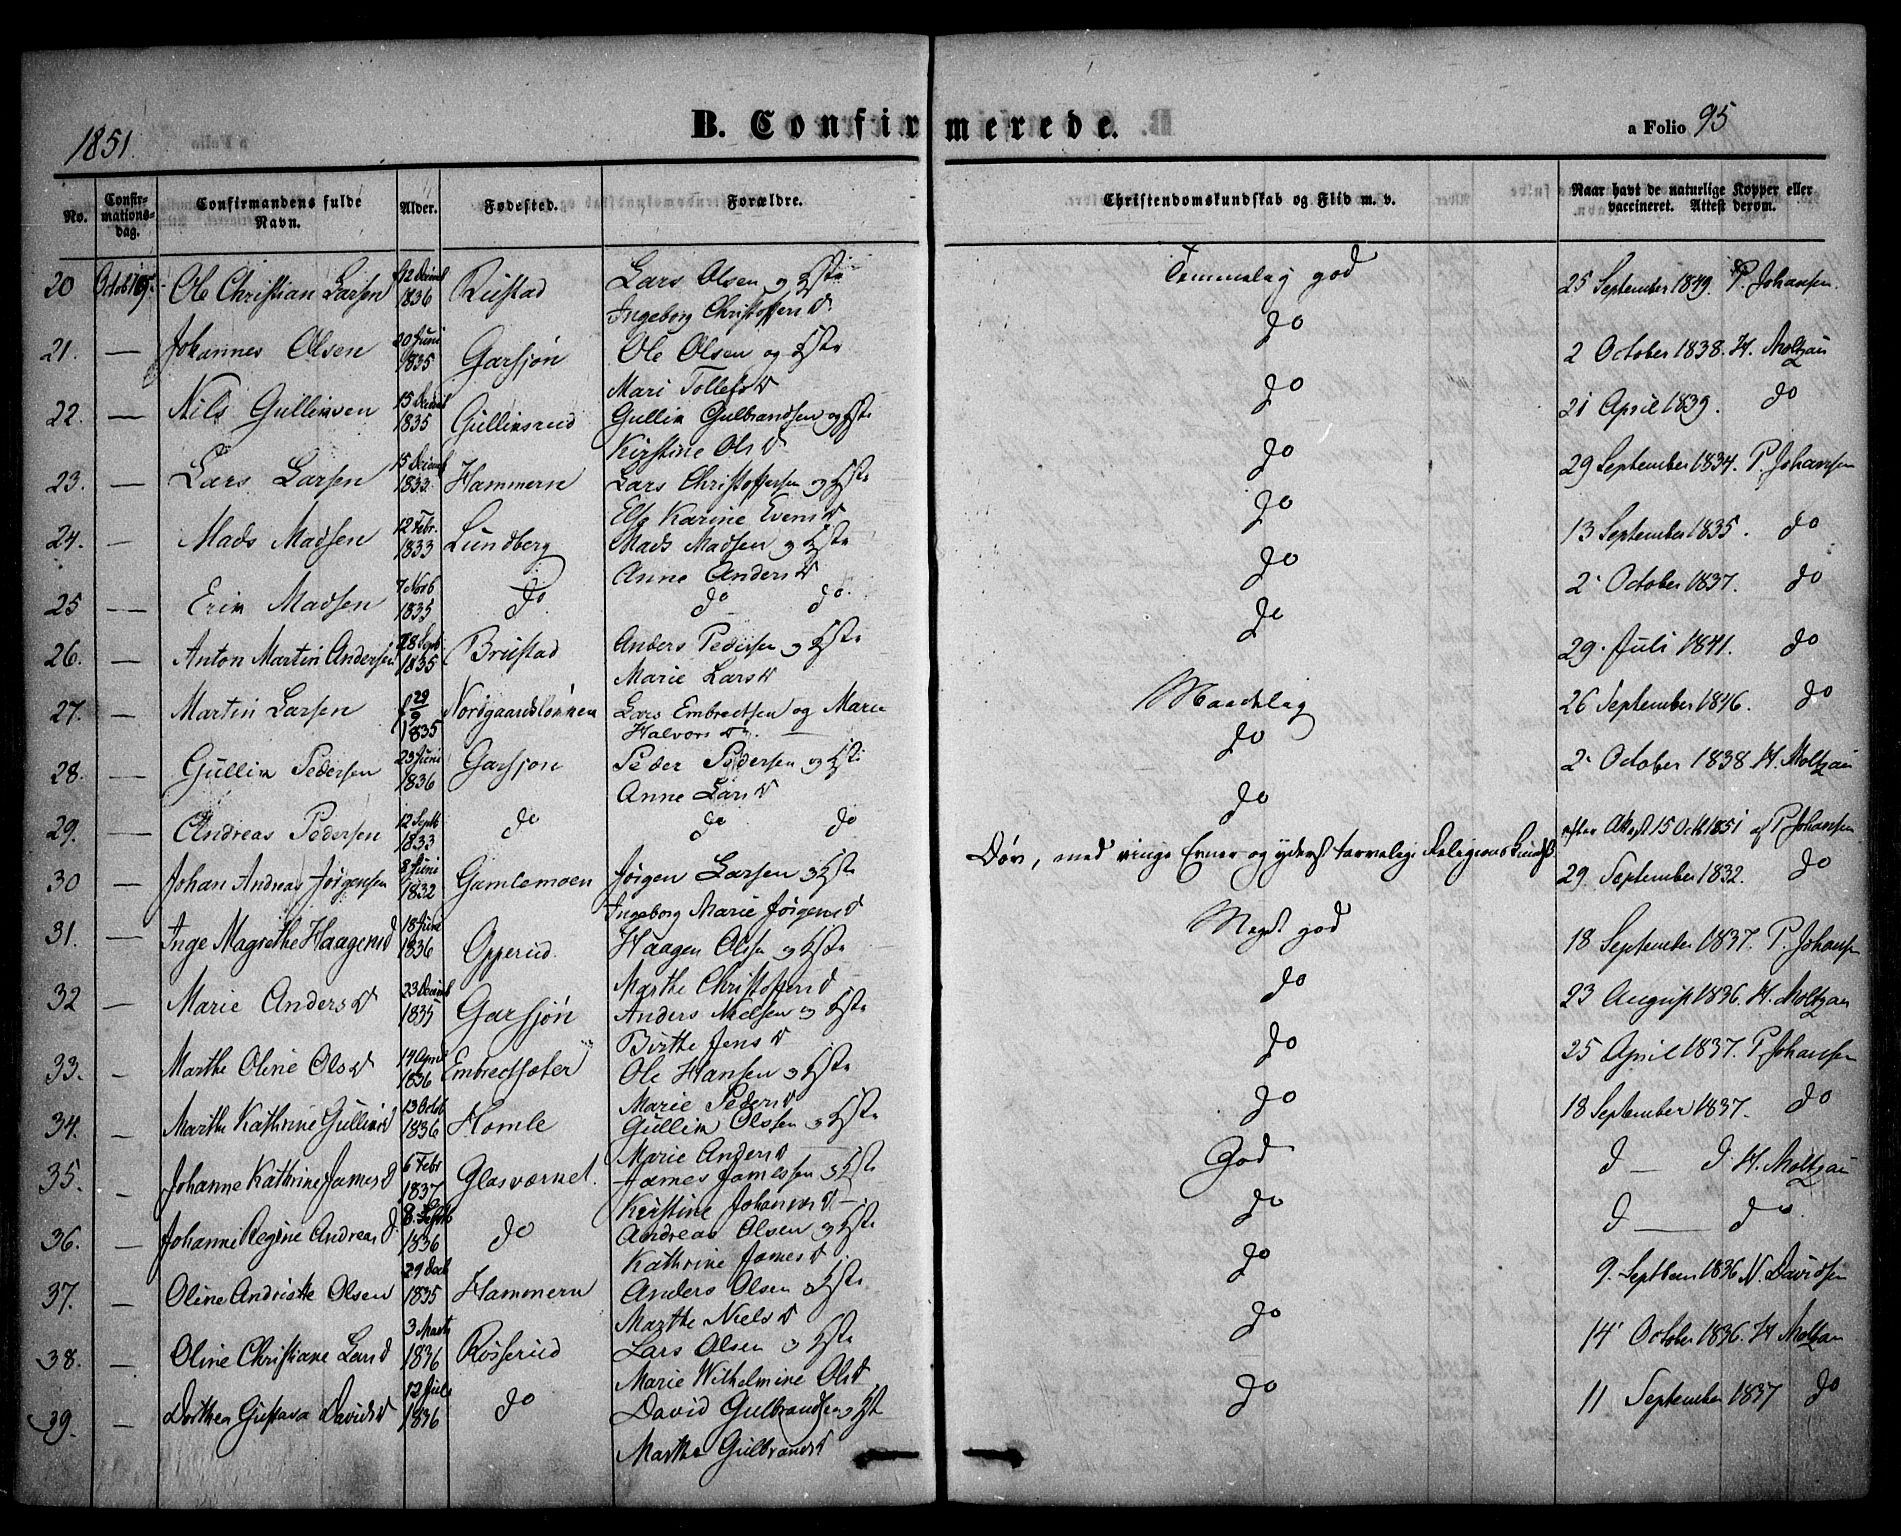 1851.
B. Confirmerede.
a Folio 95
No. Confirmationsdag. Confirmandens fulde Navn. Alder. Fødested. Forældre. Christendomskundskab og Flid m. v. Naar havt de naturlige Kopper eller vaccineret. Attest derom.
20 Ole Christian Larsen 12 Decemb 1836 Rustad Lars Olsen og Hstr Temmelig god 25 September 1849. P. Johansen.
Ingeborg Christoffersd
21. — Johannes Olsen 20 Juni 1835 Garsjøn Ole Olsen og Hstr do 2 October 1838. H. Moltzau
Mari Tollefsd
22. — Nils Gullixsen 15 Decemb 1835 Gullixsrud Gullix Gulbrandsen og Hstr do 21 April 1839. do
Kirstine Olsd
23. — Lars Larsen 15 Decemb 1833 Hammern Lars Christoffersen og Hstr do 29 September 1834. P. Johansen
Else Karine Evensd
24. — Mads Madsen 12 Febr. 1833 Lundberg Mads Madsen og Hstr do 13 September 1835. do
Anne Andersd
25 — Erik Madsen 7 Novb 1835 do do do do 2 October 1837. do
26. — Anton Martin Andersen 28 Sept 1835 Brustad Anders Pedersen og Hstr do 29. Juli 1841. do
Marie Larsd
27. — Martin Larsen 29/9 1835 Nordgaardslønnen Lars Embretsen og Marie Maadelig 26 September 1846. do
Halvorsd
28. — Gullik Pedersen 23 Juni 1836 Garsjøn Peder Pedersen og Hstr do 2 October 1838 H. Moltzau
Anne Larsd
29. — Andreas Pedersen 12 Septb 1833 do do do do efter Attest 15 Octb 1851 af P. Johansen
30 — Johan Andreas Jørgensen 8 Juni 1832 Gamlemoen Jørgen Larsen og Hstr Døv, med ringe Evner og yderst tarvelig Religionskundsk 29. September 1832. do
Ingeborg Marie Jørgensd
31. — Inge Magrethe Haagensd 18 Juni 1836 Opperud Haagen Olsen og Hstr Meget god 18 September 1837. P. Johansen
Marthe Christoffersd
32 — Marie Andersd 23 Decemb 1835 Garsjøn Anders Nielsen og Hstr do 23 August 1836. H. Moltzau
Birthe Jensd
33. — Marthe Oline Olsd 14 April 1836 Embretsæter Ole Hansen og Hstr do 25 April 1837. P. Johansen
Marie Pedersd
34. — Marthe Kathrine Gullixsd 13 Octob 1836 Homle Gullik Olsen og Hstr do 18 September 1837. do
Marie Andersd
35. — Johanne Kathrine Jamesd 6 Febr 1837 Glasværnet. James Jamessen og Hstr God d — d H. Moltzau
Kirstine Johannesd
36. — Johanne Regine Andreasd 8 Septb 1836 do Andreas Olsen og Hstr do d — do
Kathrine Jamesd
37. — Oline Andriette Olsen 29 Decb 1835 Hammern Anders Olsen og Hstr do 9. Septben 1836 N. Davidsen
Marthe Nielsd
38. — Oline Christiane Larsd 3 Marts 1836 Røiserud Lars Olsen og Hstr do 14 October 1836. H Moltzau
Marie Wilhelmine Olsd
39. — Dorthea Gustava Davidsd 12 Juli 1836 do David Gulbrandsen og Hstr do 11 September 1837 do
Marthe Gulbrandsd